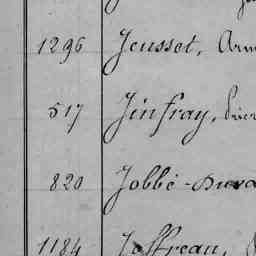 1296 Jeusset, Arm
517 Jinfray, Pier
820 Jobbé-Duva
1184 Joffreau,